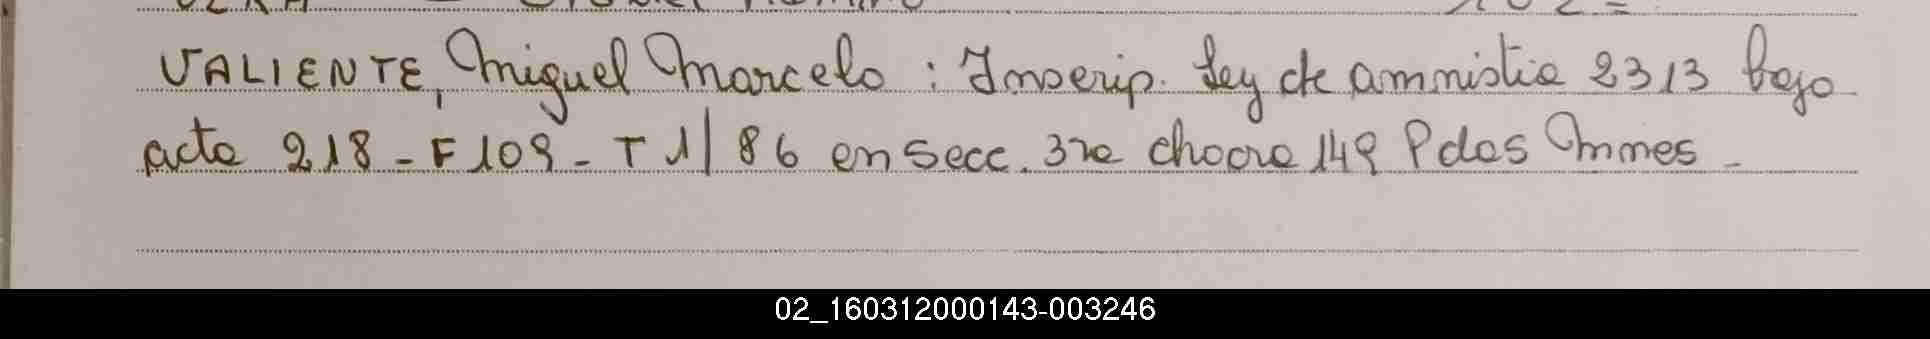 VALIENTE, Miguel Marcelo : Inscrip. Ley de amnistia 2313 bajo
acta 218 - F 109 - T 1/ 86 en secc. 3ra chacra 149 Pdas Mnnes -
02_160312000143-003246